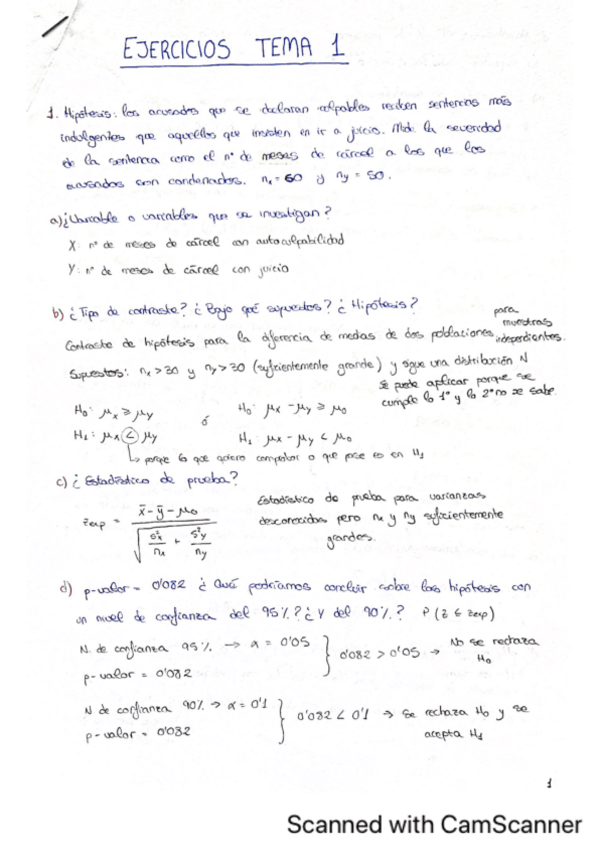 EJERCICIOS TEMA 1
1. Hipótesis: los acusados que se declaran culpables reciben sentencias más
indulgentes que aquellos que insisten en ir a juicio. Mide la severidad
de la sentencia como el nº de meses de cárcel a los que los
acusados son condenados. nx = 60 y ny = 50.
a) ¿Variable o variables que se investigan?
X: nº de meses de cárcel con autoculpabilidad
Y: nº de meses de cárcel con juicio
b) ¿Tipo de contraste? ¿Bajo qué supuestos? ¿Hipótesis?
Contraste de hipótesis para la diferencia de medias de dos poblaciones, para muestras independientes.
Supuestos: nx > 30 y ny > 30 (suficientemente grande) y sigue una distribución N
se puede aplicar porque se
cumple lo 1º y lo 2º no se sabe.
H0: μx ≥ μy ó H0: μx - μy ≥ μ0
H1: μx < μy H1: μx - μy < μ0
↳ porque lo que quiero comprobar o que pase es en H1
c) ¿Estadístico de prueba?
zexp = (x̄ - ȳ - μ0) / √(s²x/nx + s²y/ny)
Estadístico de prueba para varianzas
desconocidas pero nx y ny suficientemente
grandes.
d) p-valor = 0'082 ¿Qué podríamos concluir sobre las hipótesis con
un nivel de confianza del 95%? ¿Y del 90%? P(z ≤ zexp)
N. de confianza 95% → α = 0'05
p-valor = 0'082
} 0'082 > 0'05 → No se rechaza H0
N de confianza 90% → α = 0'1
p-valor = 0'082
} 0'082 < 0'1 → Se rechaza H0 y se
acepta H1
1
Scanned with CamScanner